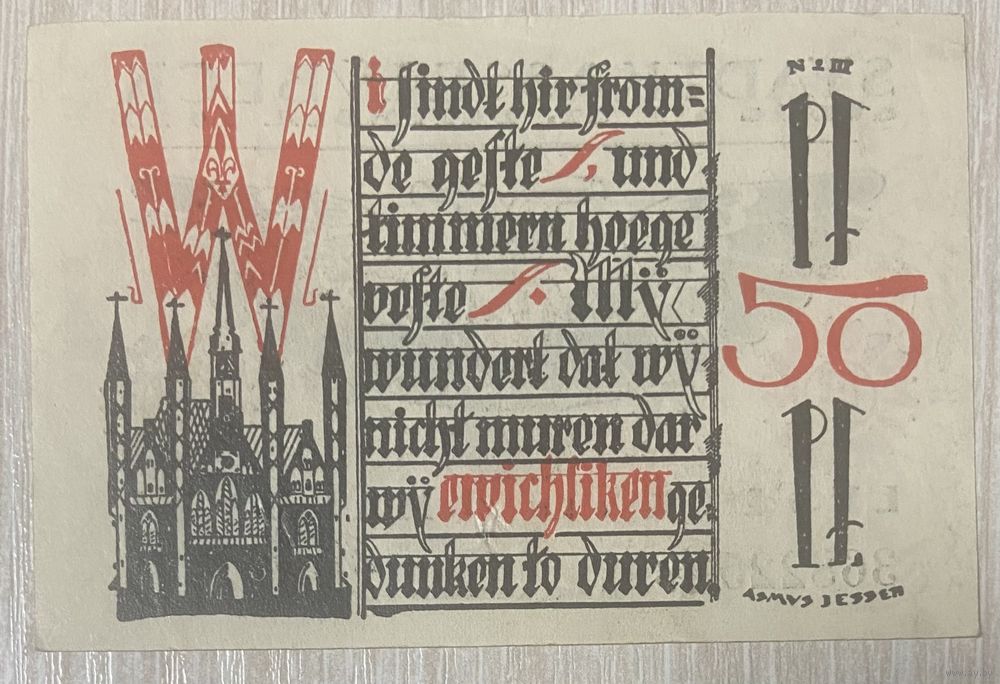 Wi sindt hir from=
de geste, und
timmern hoege
veste. Mÿ
wundert dat wÿ
nicht muren dar
wÿ ewichliken ge
dunken to duren
Pf
50
Pf
ASMVS JESSEN
www.ay.by